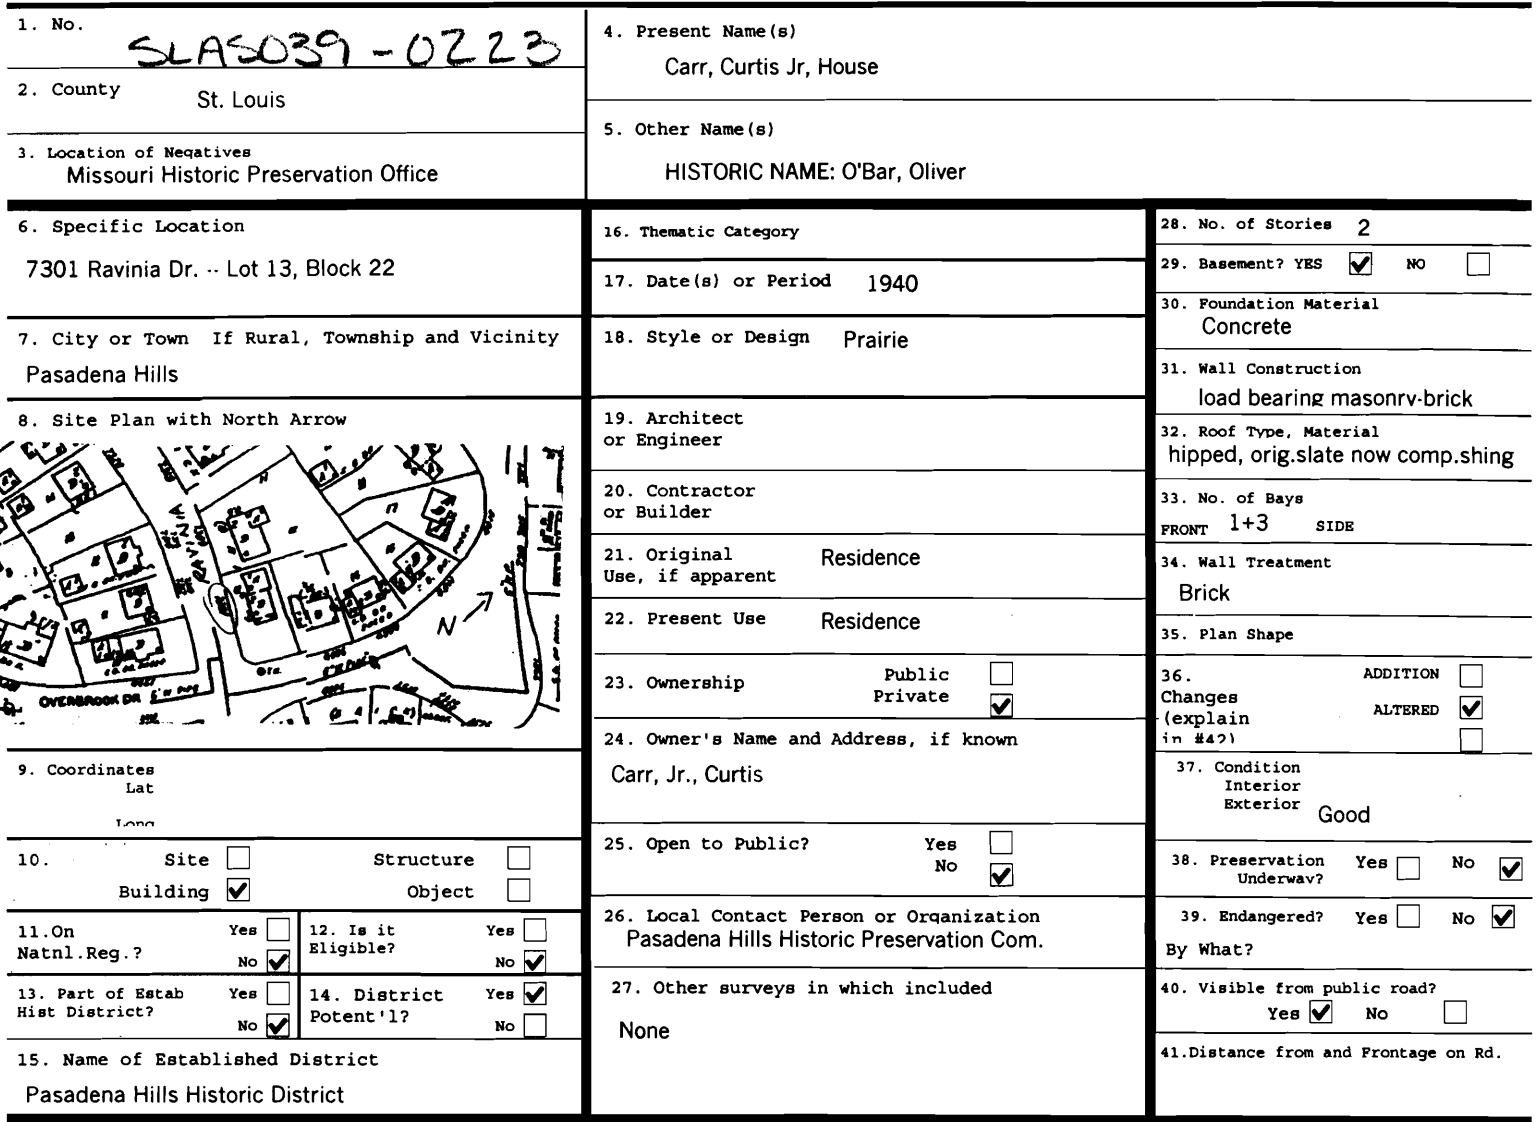 1. No.
SLAS039-0223
2. County
St. Louis
3. Location of Negatives
Missouri Historic Preservation Office
4. Present Name(s)
Carr, Curtis Jr, House
5. Other Name(s)
HISTORIC NAME: O'Bar, Oliver
6. Specific Location
7301 Ravinia Dr. -- Lot 13, Block 22
7. City or Town If Rural, Township and Vicinity
Pasadena Hills
8. Site Plan with North Arrow
RAVINIA
N
OVERBROOK DR
9. Coordinates
Lat
Long
10. Site Structure
Building Object
11.On Yes
Natnl.Reg.? No
12. Is it Yes
Eligible? No
13. Part of Estab Yes
Hist District? No
14. District Yes
Potent'l? No
15. Name of Established District
Pasadena Hills Historic District
16. Thematic Category
17. Date(s) or Period 1940
18. Style or Design Prairie
19. Architect
or Engineer
20. Contractor
or Builder
21. Original Residence
Use, if apparent
22. Present Use Residence
23. Ownership Public
Private
24. Owner's Name and Address, if known
Carr, Jr., Curtis
25. Open to Public? Yes
No
26. Local Contact Person or Organization
Pasadena Hills Historic Preservation Com.
27. Other surveys in which included
None
28. No. of Stories 2
29. Basement? YES NO
30. Foundation Material
Concrete
31. Wall Construction
load bearing masonry-brick
32. Roof Type, Material
hipped, orig.slate now comp.shing
33. No. of Bays
FRONT 1+3 SIDE
34. Wall Treatment
Brick
35. Plan Shape
36. ADDITION
Changes
(explain ALTERED
in #42)
37. Condition
Interior
Exterior Good
38. Preservation Yes No
Underway?
39. Endangered? Yes No
By What?
40. Visible from public road?
Yes No
41.Distance from and Frontage on Rd.